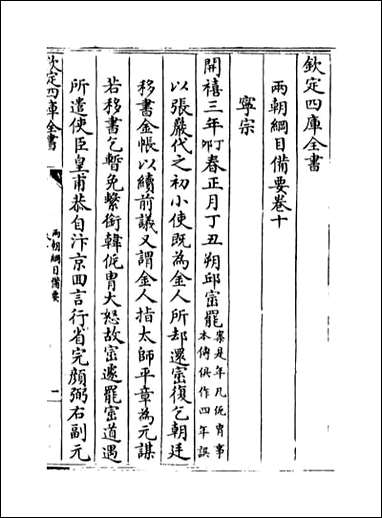 欽定四庫全書
兩朝綱目備要卷十
寧宗
開禧三年丁卯春正月丁丑朔邱崈罷案是年凡侂胄事本傳俱作四年誤
以張嚴代之初小使既為金人所却還崈復乞朝廷
移書金帳以續前議又謂金人指太師平章為元謀
若移書乞暫免繫銜韓侂胄大怒故崈遽罷崈道遇
所遣使臣皇甫恭自汴京回言行省完顏弼右副元
欽定四庫全書
兩朝綱目備要
一